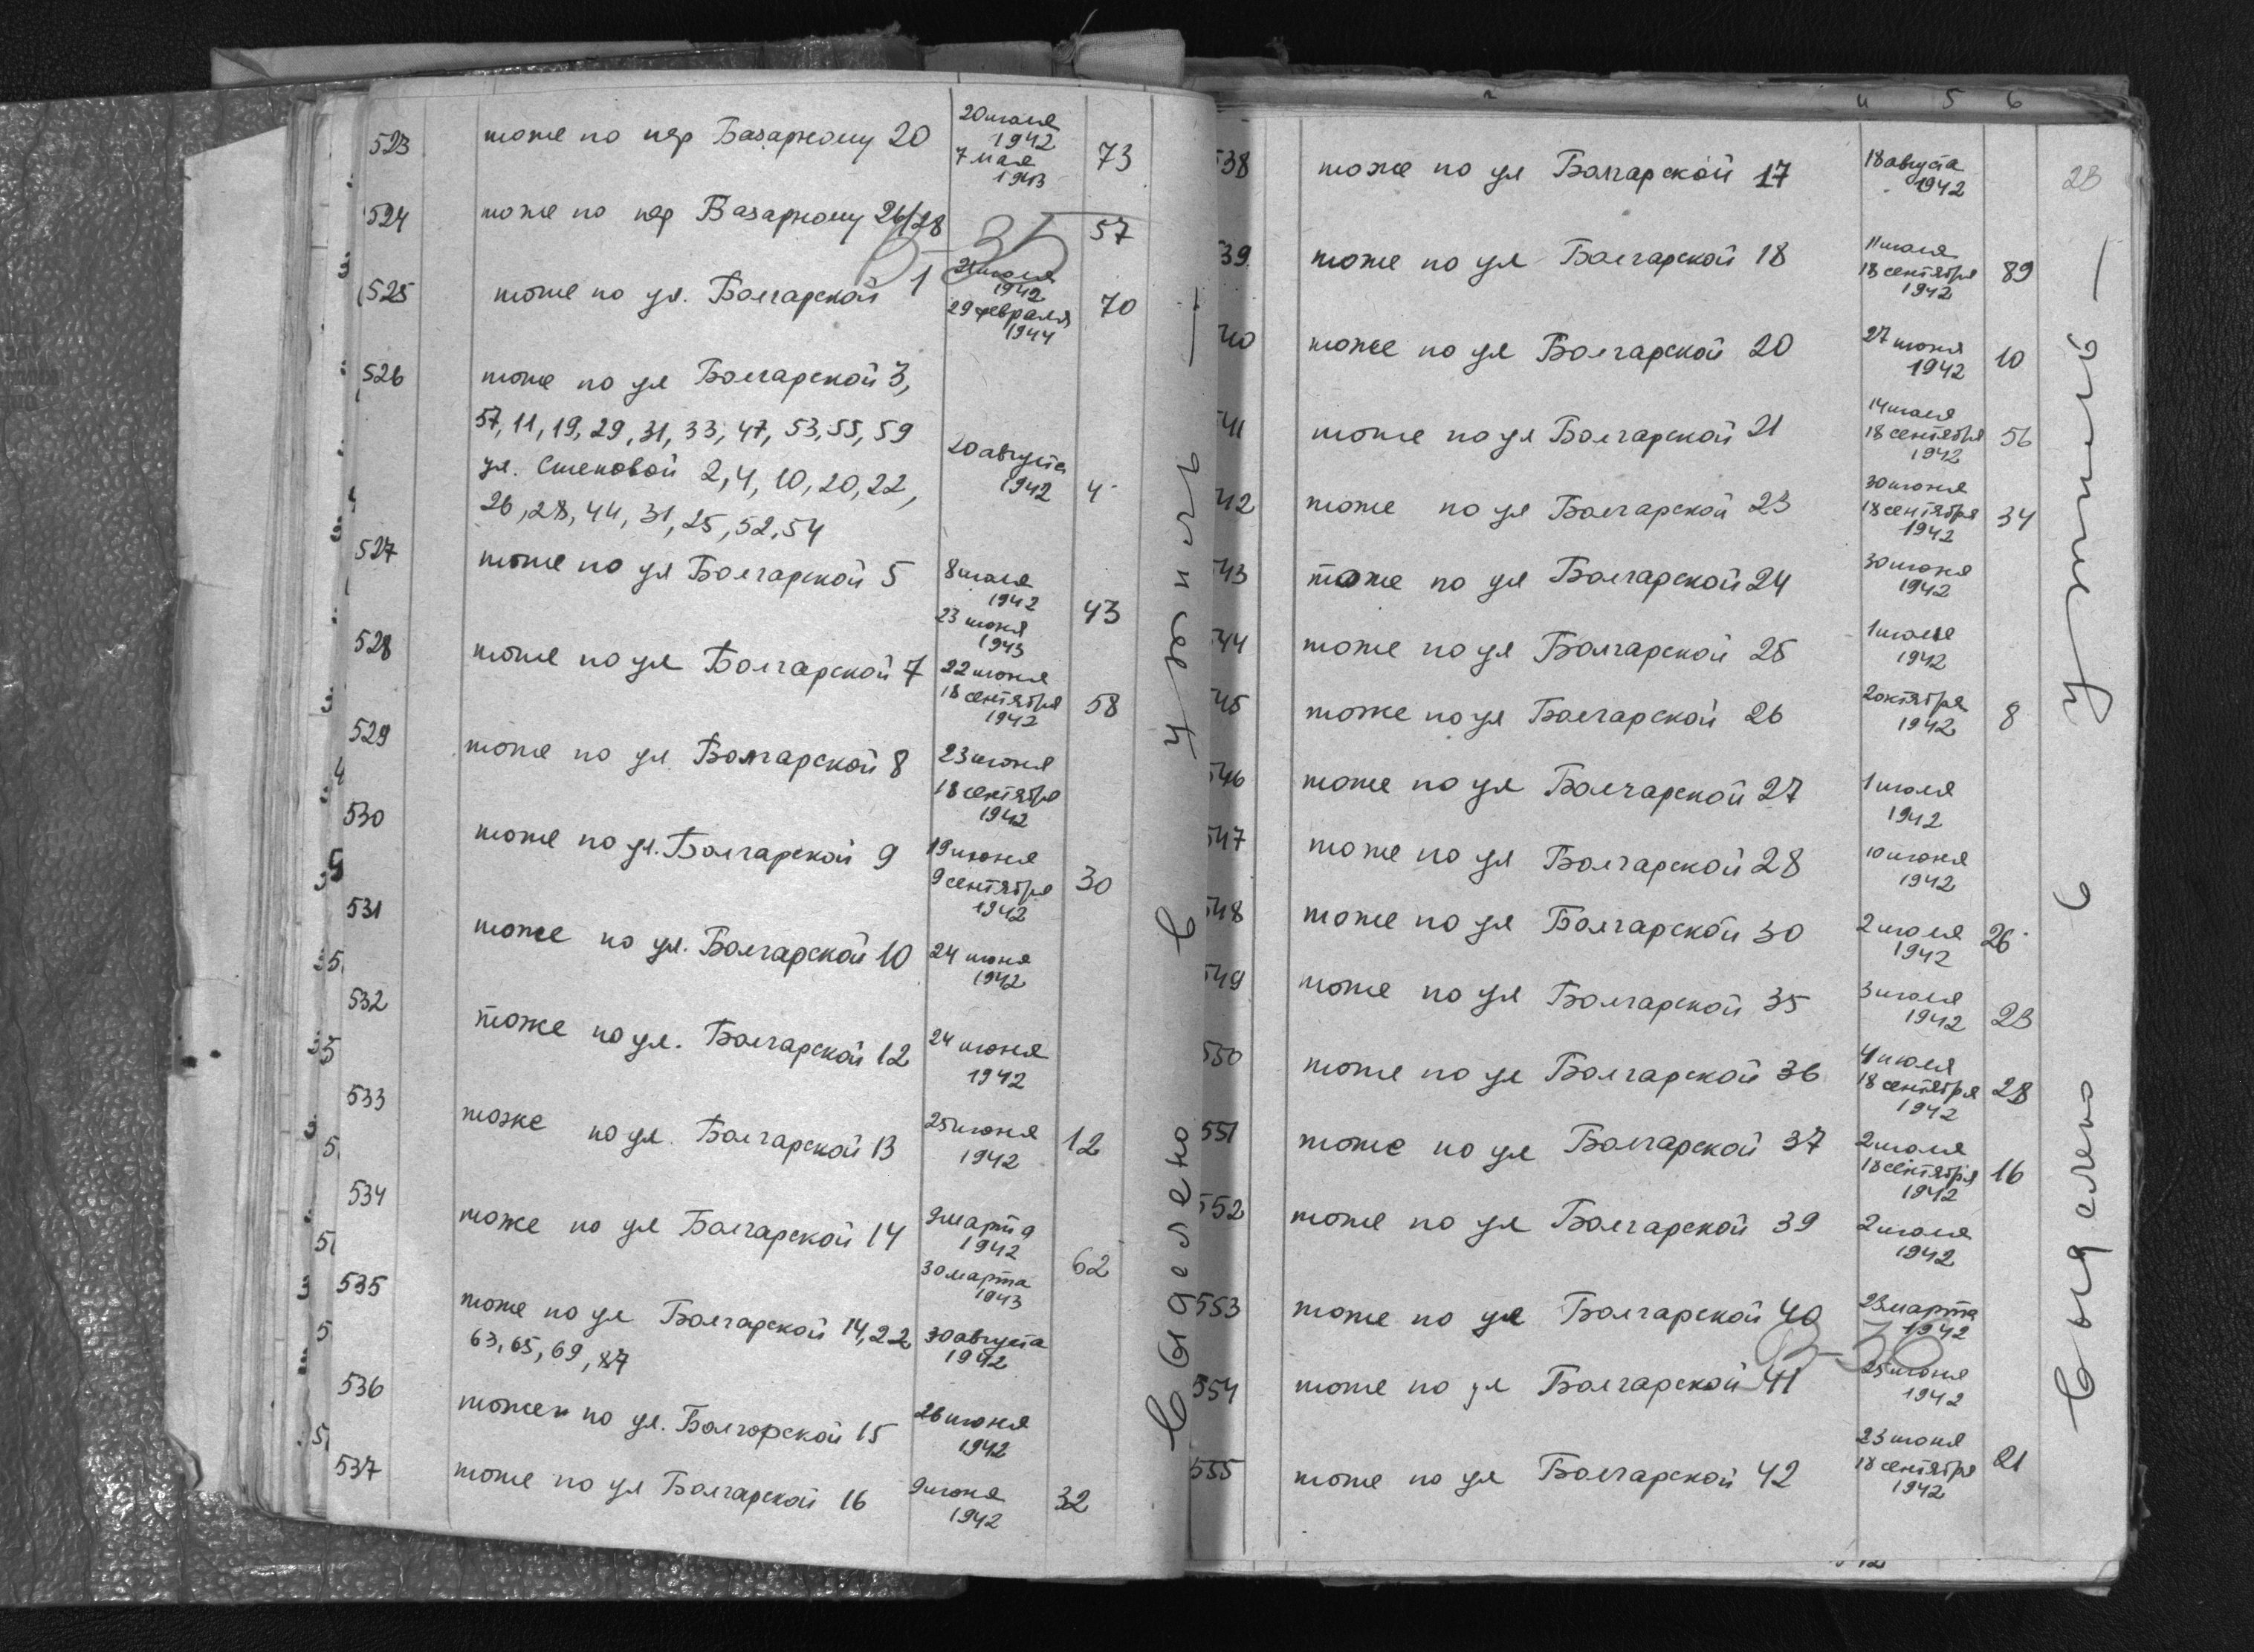 523 тоже по пер Базарному 20 20 июля 1942 7 мая 1943 73
524 тоже по пер Базарному 26/28 57
525 тоже по ул. Болгарской 1 1942 29 февраля 1944 70
526 тоже по ул Болгарской 3,
57, 11, 19, 29, 31, 33, 47, 53, 55, 59
ул. Степовой 2, 4, 10, 20, 22, 20 августа 1942 4
26, 28, 44, 31, 25, 52, 54
527 тоже по ул Болгарской 5 8 июля 1942 23 июня 1943 43
528 тоже по ул Болгарской 7 22 июня 18 сентября 1942 58
529 тоже по ул Болгарской 8 23 июня 18 сентября 1942
530 тоже по ул. Болгарской 9 19 июня 9 сентября 1942 30
531 тоже по ул. Болгарской 10 24 июня 1942
532 тоже по ул. Болгарской 12 24 июня 1942
533 тоже по ул. Болгарской 13 25 июня 1942 12
534 тоже по ул Болгарской 14 9 марта 1942 30 марта 1943 62
535 тоже по ул Болгарской 14, 22 30 августа 1942
63, 65, 69, 87
536 тоже по ул. Болгарской 15 26 июня 1942
537 тоже по ул Болгарской 16 9 июня 1942 32
выделено в утиль —
4 5 6
23
538 тоже по ул Болгарской 17 18 августа 1942
39 тоже по ул Болгарской 18 11 июля 18 сентября 1942 89
40 тоже по ул Болгарской 20 27 июня 1942 10
41 тоже по ул Болгарской 21 14 июля 18 сентября 1942 56
42 тоже по ул Болгарской 23 30 июня 18 сентября 1942 34
543 тоже по ул Болгарской 24 30 июня 1942
544 тоже по ул Болгарской 25 1 июля 1942
545 тоже по ул Болгарской 26 2 октября 1942 8
546 тоже по ул Болгарской 27 1 июля 1942
547 тоже по ул Болгарской 28 10 июня 1942
548 тоже по ул Болгарской 30 2 июля 1942 26
549 тоже по ул Болгарской 35 3 июля 1942 23
550 тоже по ул Болгарской 36 4 июля 18 сентября 1942 28
551 тоже по ул Болгарской 37 2 июля 18 сентября 1942 16
552 тоже по ул Болгарской 39 2 июля 1942
553 тоже по ул Болгарской 40 23 марта 1942
554 тоже по ул Болгарской 41 25 июня 1942
555 тоже по ул Болгарской 42 23 июня 18 сентября 1942 21
выделено в утиль —